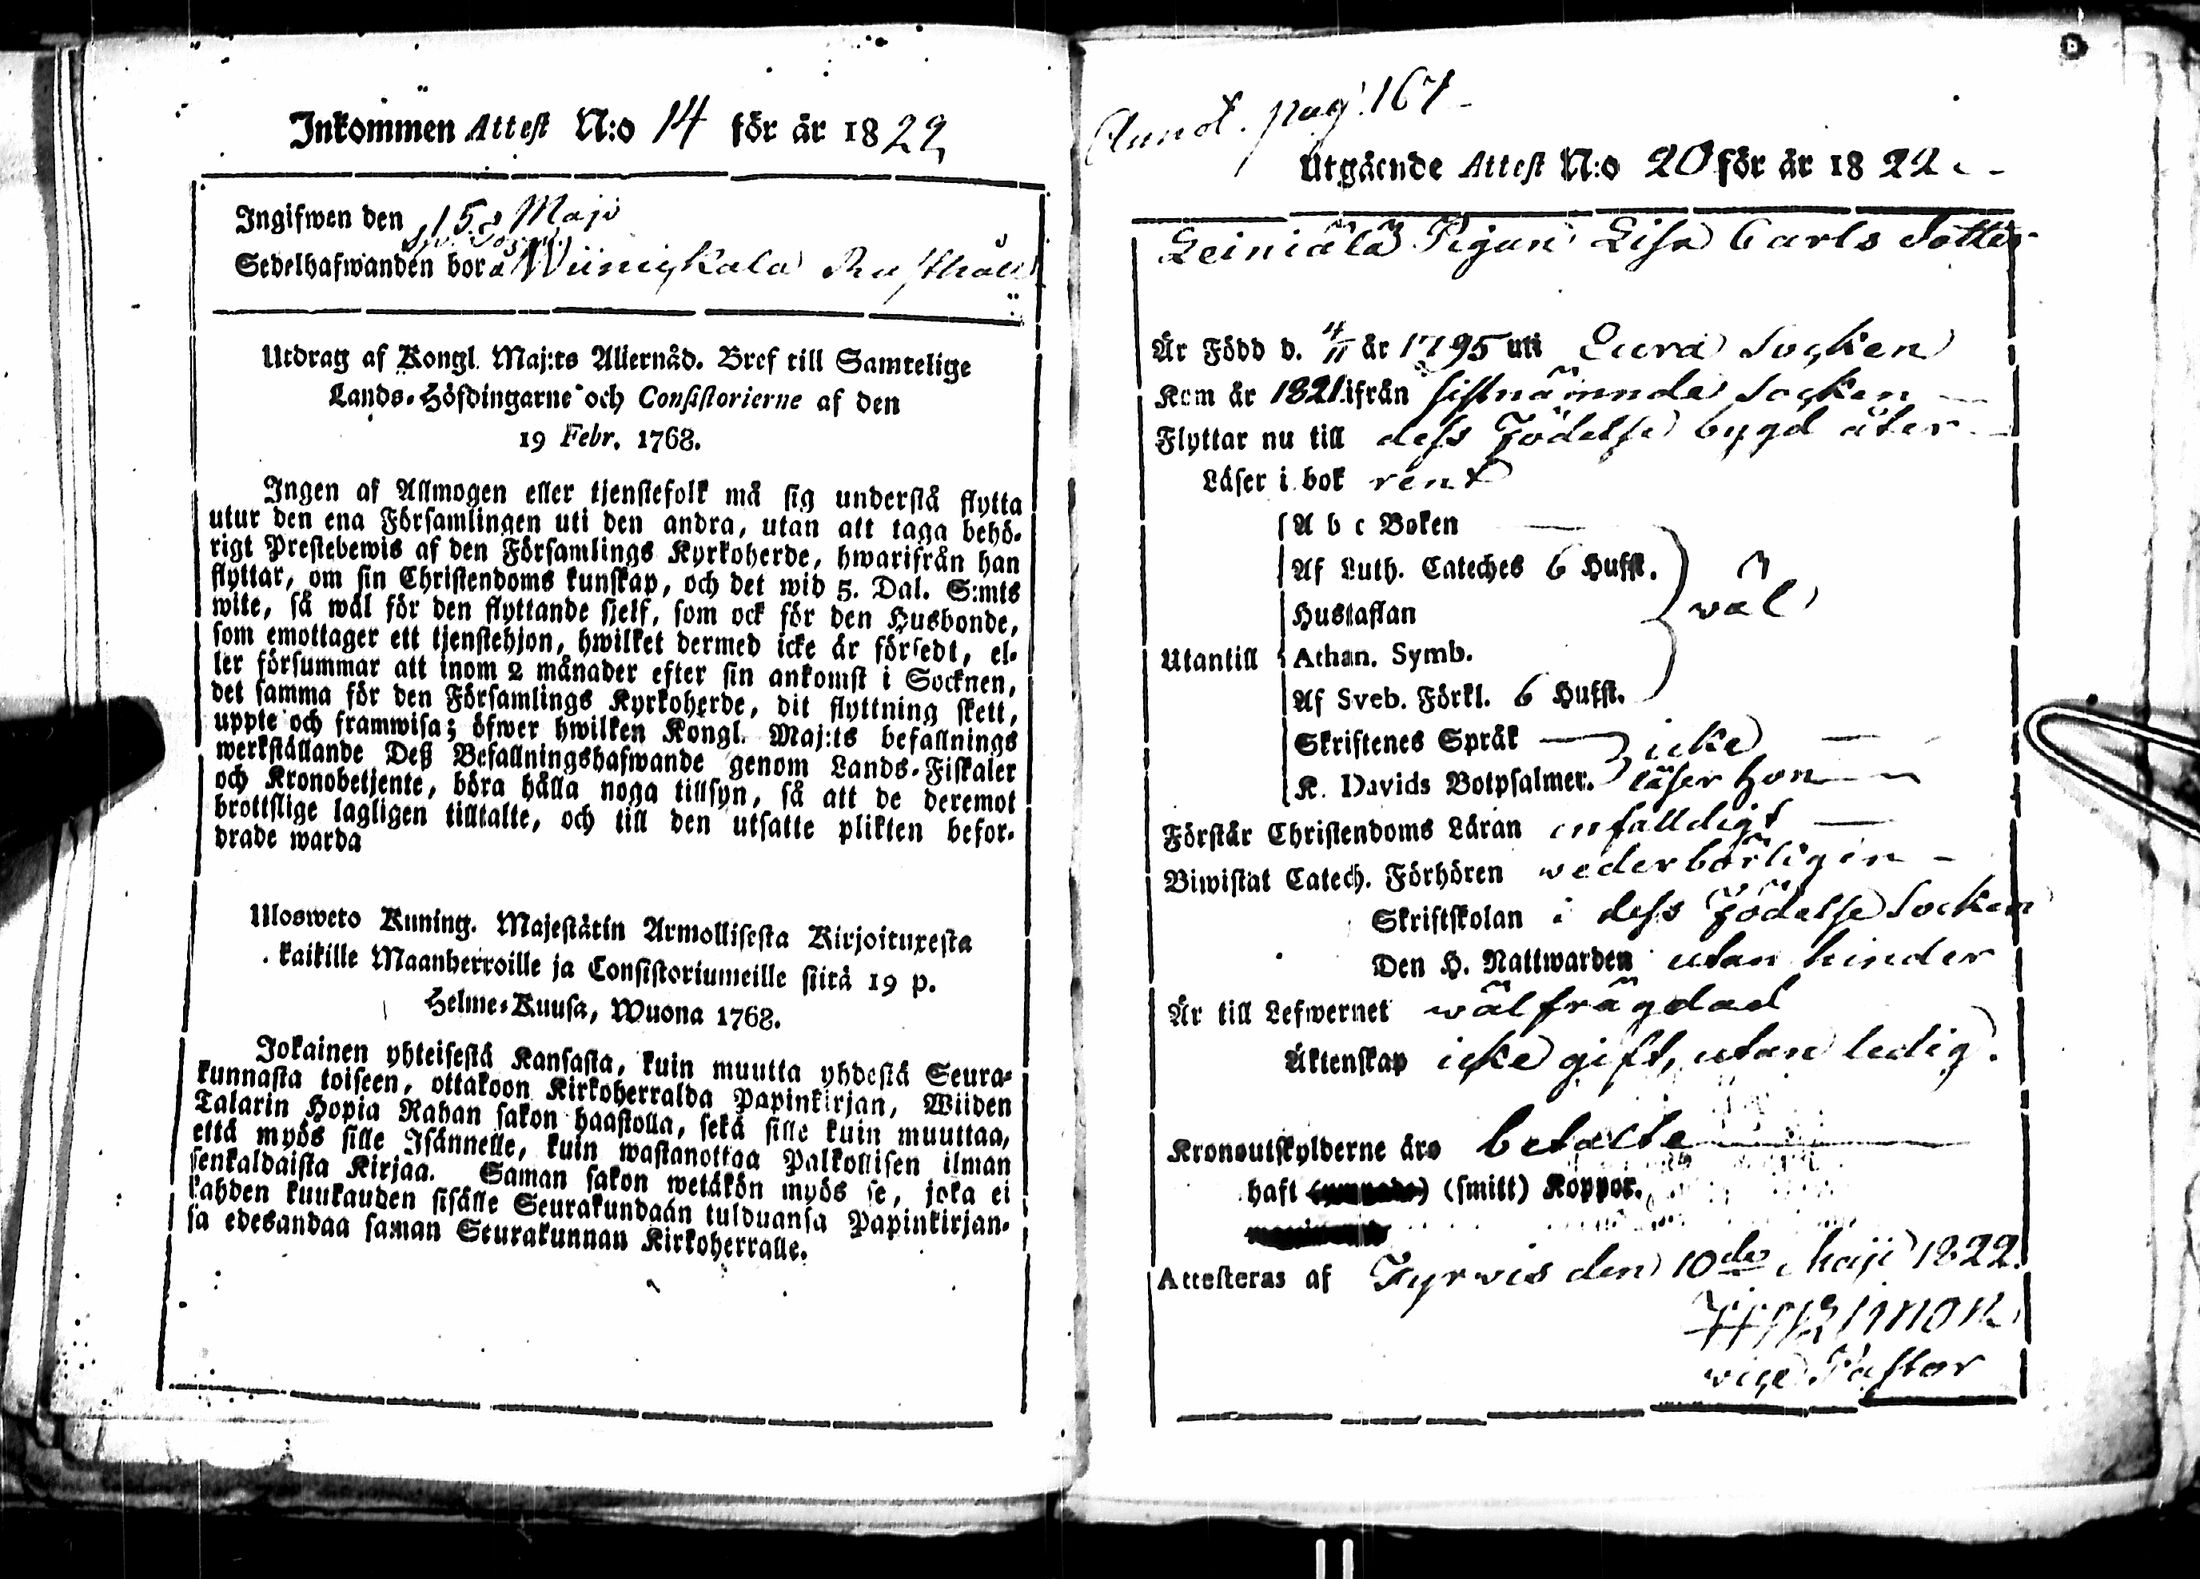 Inkommen Attest N:o 14 för år 1822
Ingifwen den 15 Maji
Sedelhafwanden bor å Wiinickala Rusthåll
Utdrag af Kongl. Maj:ts Allernåd. Bref till Samtelige
Lands-Höfdingarne och Consistorierne af den
19 Febr. 1768.
Ingen af Allmogen eller tjenstefolk må sig understå flytta
utur den ena Församlingen uti den andra, utan att taga behö-
rigt Prestebewis af den Församlings Kyrkoherde, hwarifrån han
flyttar, om sin Christendoms kunskap, och det wid 5. Dal. S:mts
wite, så wäl för den flyttande sjelf, som ock för den Husbonde,
som emottager ett tjenstehjon, hwilket dermed icke är försedt, el-
ler försummar att inom 2 månader efter sin ankomst i Socknen,
det samma för den Församlings Kyrkoherde, dit flyttning skett,
uppte och framwisa; öfwer hwilken Kongl. Maj:ts befallnings
werkställande Deß Befallningshafwande genom Lands-Fiskaler
och Kronobetjente, böra hålla noga tillsyn, så att de deremot
brottslige lagligen tilltalte, och till den utsatte plikten befor-
drade warda
Ulosweto Kuning. Majestätin Armollisesta Kirjoituxesta
kaikille Maanherroille ja Consistoriumeille siitä 19 p.
Helme-Kuusa, Wuona 1768.
Jokainen yhteisestä Kansasta, kuin muutta yhdestä Seura-
kunnasta toiseen, ottakoon Kirkoherralda Papinkirjan, Wiiden
Talarin Hopia Rahan sakon haastolla, sekä sille kuin muuttaa,
että myös sille Isännelle, kuin wastanottaa Palkollisen ilman
senkaldaista Kirjaa. Saman sakon wetäkön myös se, joka ei
kahden kuukauden sisälle Seurakundaan tulduansa Papinkirjan-
sa edesandaa saman Seurakunnan Kirkoherralle.
Annot. pag. 167
Utgående Attest N:o 20 för år 1822
Leiniälä Pigan Lisa Carls dotter
Är Född d. 4/11 år 1795 uti Eura Socken
Kom år 1821 ifrån sistnämnde Socken
Flyttar nu till dess Födelse bygd åter
Läser i bok rent
A b c Boken
Af Luth. Cateches 6 Hufst.
Hustaflan
wäl
Utantill Athan. Symb.
Af Sveb. Förkl. 6 Hufst.
Skriftenes Språk icke
K. Davids Botpsalmer. läser hon
Förstår Christendoms Läran enfalldigt
Biwistat Catech. Förhören wederbörligen
Skriftskolan i dess Födelse Socken
Den H. Nattwarden utan hinder
Är till Lefwernet wälfrägdad
Äktenskap icke gift, utan ledig.
Kronoutskylderne äro betalte
haft (smitt) Koppor.
Attesteras af Tyrwis den 10de Maji 1822.
vice Pastor